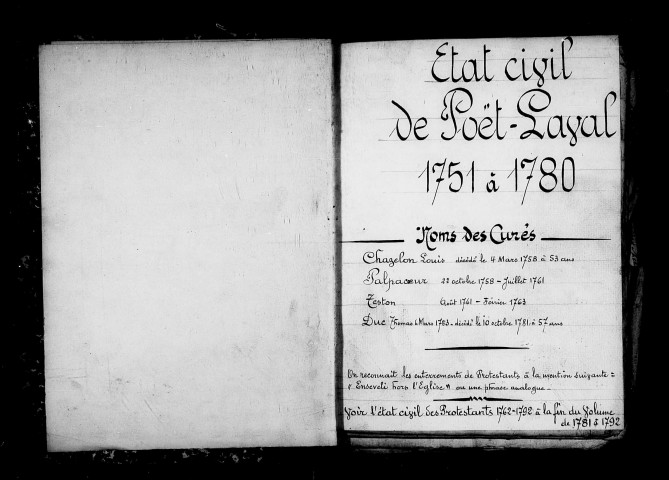 Etat civil
de Poët-Laval
1751 à 1780
Noms des Curés
Chazelon Louis décédé le 4 Mars 1758 à 53 ans
Palpacœur 22 octobre 1758 - Juillet 1761
Teston Août 1761 - Février 1763
Duc Thomas 6 Mars 1763 - décédé le 10 octobre 1781 à 57 ans
On reconnait les enterrements de Protestants à la mention suivante =
" Enseveli hors l'Eglise " ou une phrase analogue -
Voir l'état civil des Protestants 1762-1792 à la fin du Volume
de 1781 à 1792